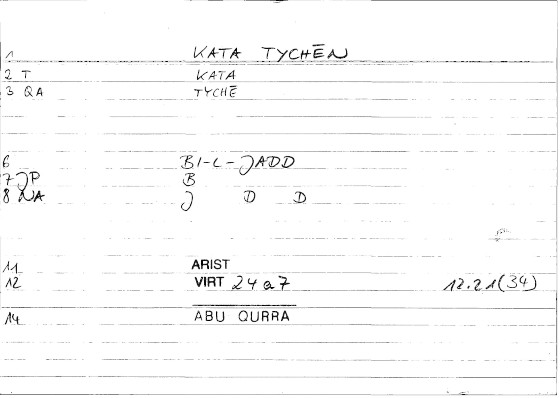 1 KATA TYCHĒN
2 T KATA
3 QA TYCHĒ
6 BI-L-JADD
7 JP B
8 NA J D D
11 ARIST
12 VIRT 24a7 12.21(34)
14 ABU QURRA